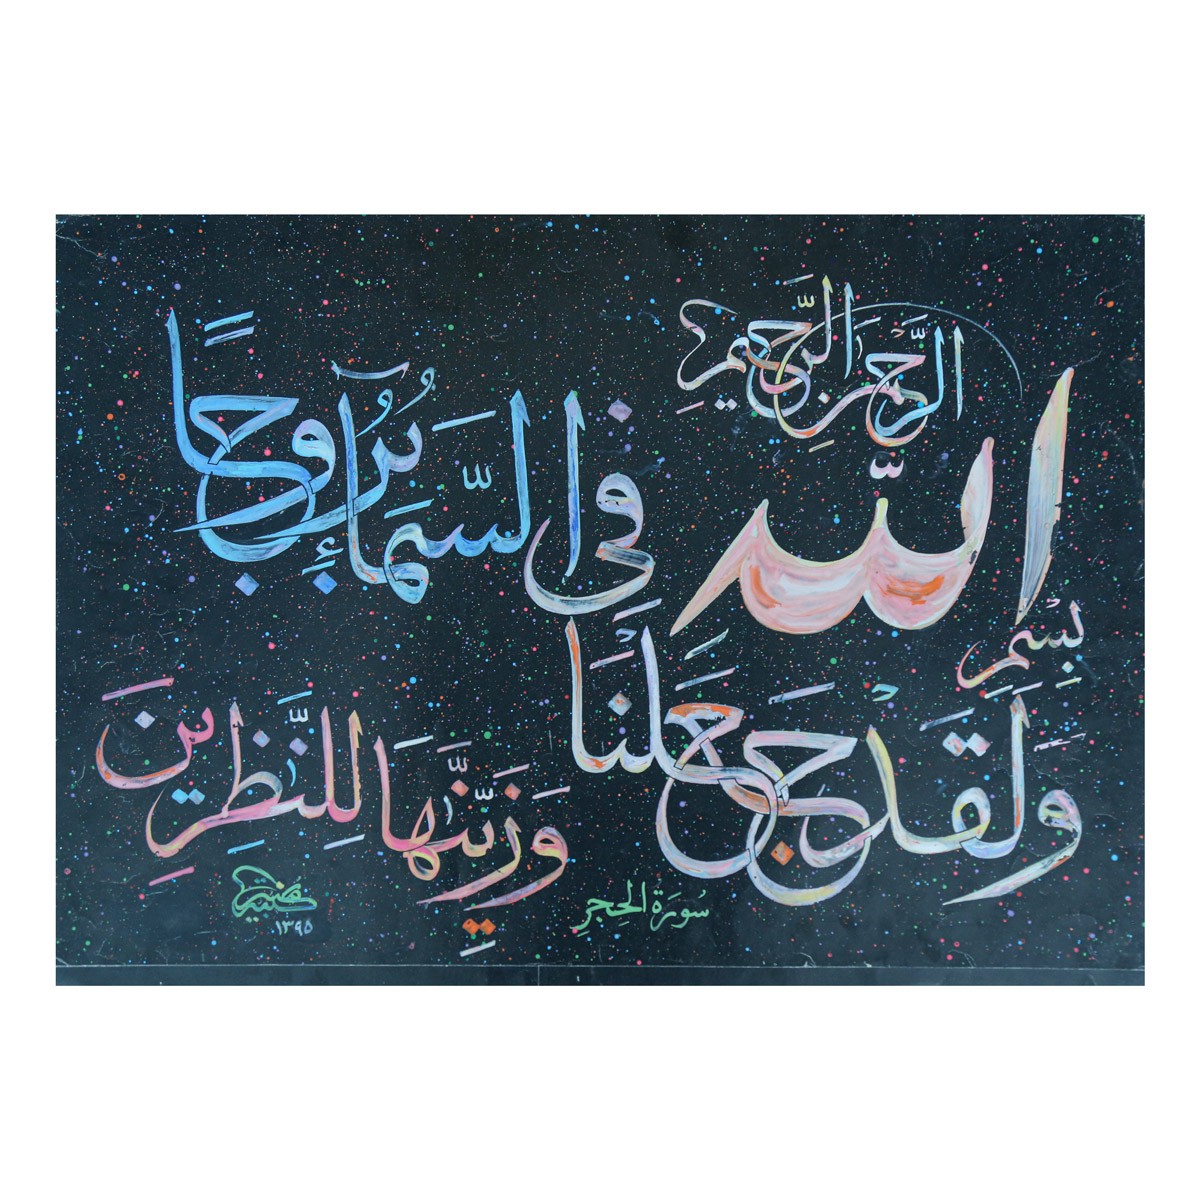 بِسْمِ اللّٰهِ
الرَّحْمٰنِ الرَّحِيمِ
وَلَقَدْ جَعَلْنَا
فِي السَّمَاءِ بُرُوجًا
وَزَيَّنّٰهَا لِلنّٰظِرِينَ
سُورَة الحِجرِ
١٣٩٥